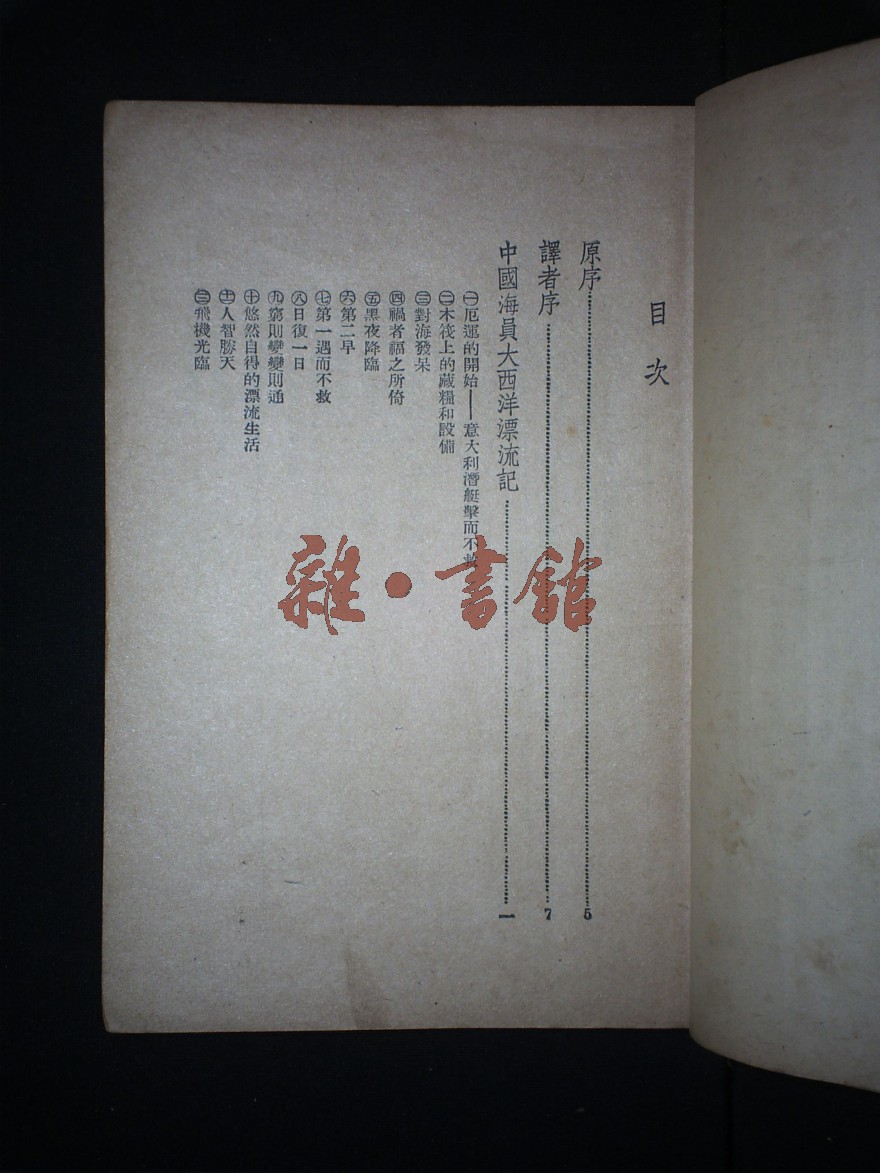 目次
原序……5
譯者序……7
中國海員大西洋漂流記……一
㊀厄運的開始——意大利潛艇擊而不救
㊁木筏上的藏糧和設備
㊂對海發呆
㊃禍者福之所倚
㊄黑夜降臨
㊅第二早
㊆第一遇而不救
㊇日復一日
㊈窮則變變則通
㊉悠然自得的漂流生活
人智勝天
飛機光臨
雜·書館